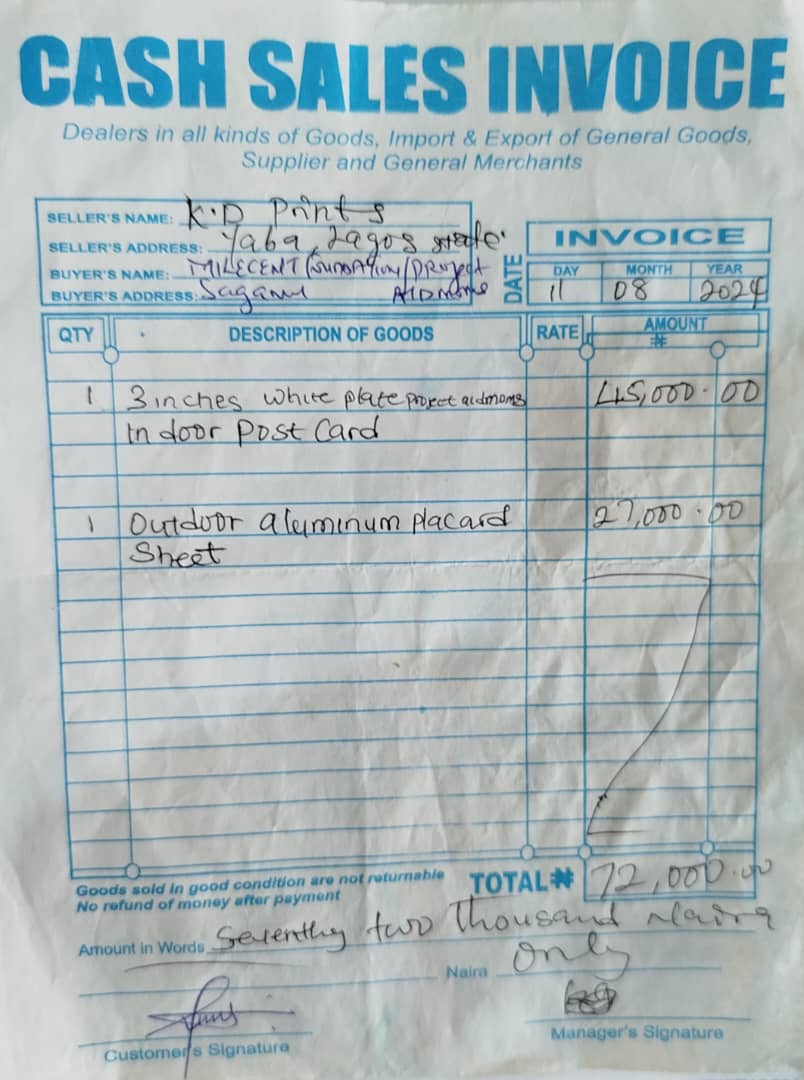 CASH SALES INVOICE
Dealers in all kinds of Goods, Import & Export of General Goods,
Supplier and General Merchants
SELLER'S NAME: K.D Prints
SELLER'S ADDRESS: Yaba, Lagos state.
BUYER'S NAME: MILECENT foundation/Project
BUYER'S ADDRESS: Sagamu AIDmoms
INVOICE
DATE
DAY MONTH YEAR
11 08 2024
QTY DESCRIPTION OF GOODS RATE AMOUNT
#
1 3 inches white plate project aidmoms 45,000.00
Indoor Post Card
1 Outdoor aluminum placard 27,000.00
Sheet
Goods sold in good condition are not returnable
No refund of money after payment
TOTAL # 72,000.00
Amount in Words Seventhy two Thousand Naira
Naira only
Customer's Signature
Manager's Signature